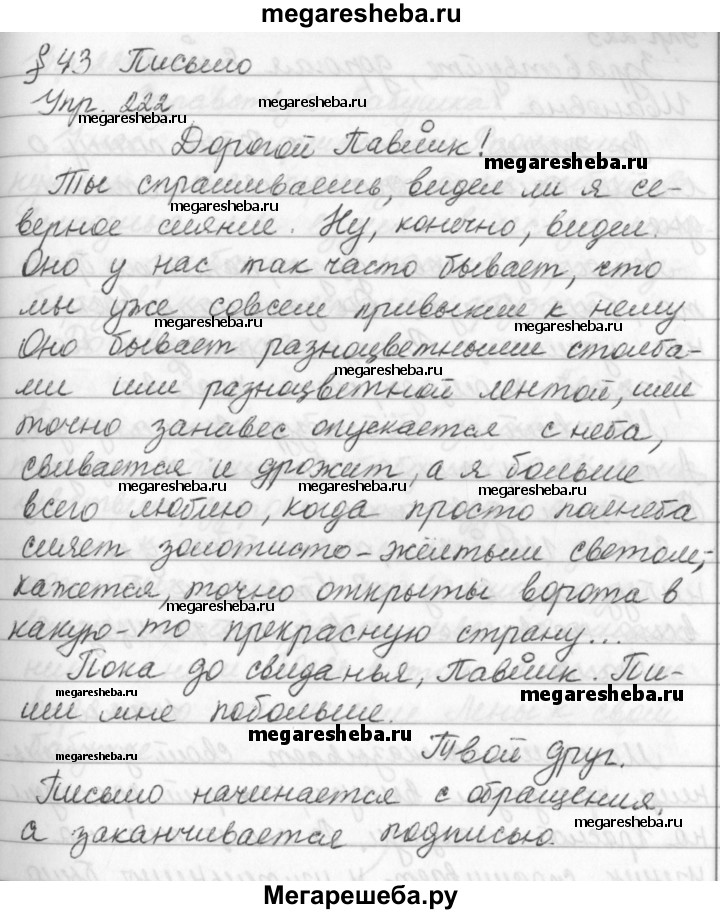 megaresheba.ru
§ 43 Письмо
Упр. 222
megaresheba.ru
megaresheba.ru
Дорогой Павлик!
megaresheba.ru
Ты спрашиваешь, видел ли я се-
megaresheba.ru
megaresheba.ru
верное сияние. Ну, конечно, видел.
Оно у нас так часто бывает, что
мы уже совсем привыкли к нему
megaresheba.ru
megaresheba.ru
Оно бывает разноцветными столба-
megaresheba.ru
ми или разноцветной лентой, или
точно занавес опускается с неба,
свивается и дрожит, а я больше
megaresheba.ru
megaresheba.ru
megaresheba.ru
всего люблю, когда просто полнеба
сияет золотисто-жёлтым светом,
кажется, точно открыты ворота в
megaresheba.ru
какую-то прекрасную страну...
Пока до свиданья, Павлик. Пи-
megaresheba.ru
megaresheba.ru
ши мне побольше.
megaresheba.ru
Твой друг.
megaresheba.ru
Письмо начинается с обращения,
megaresheba.ru
а заканчивается подписью.
Мегарешеба.ру